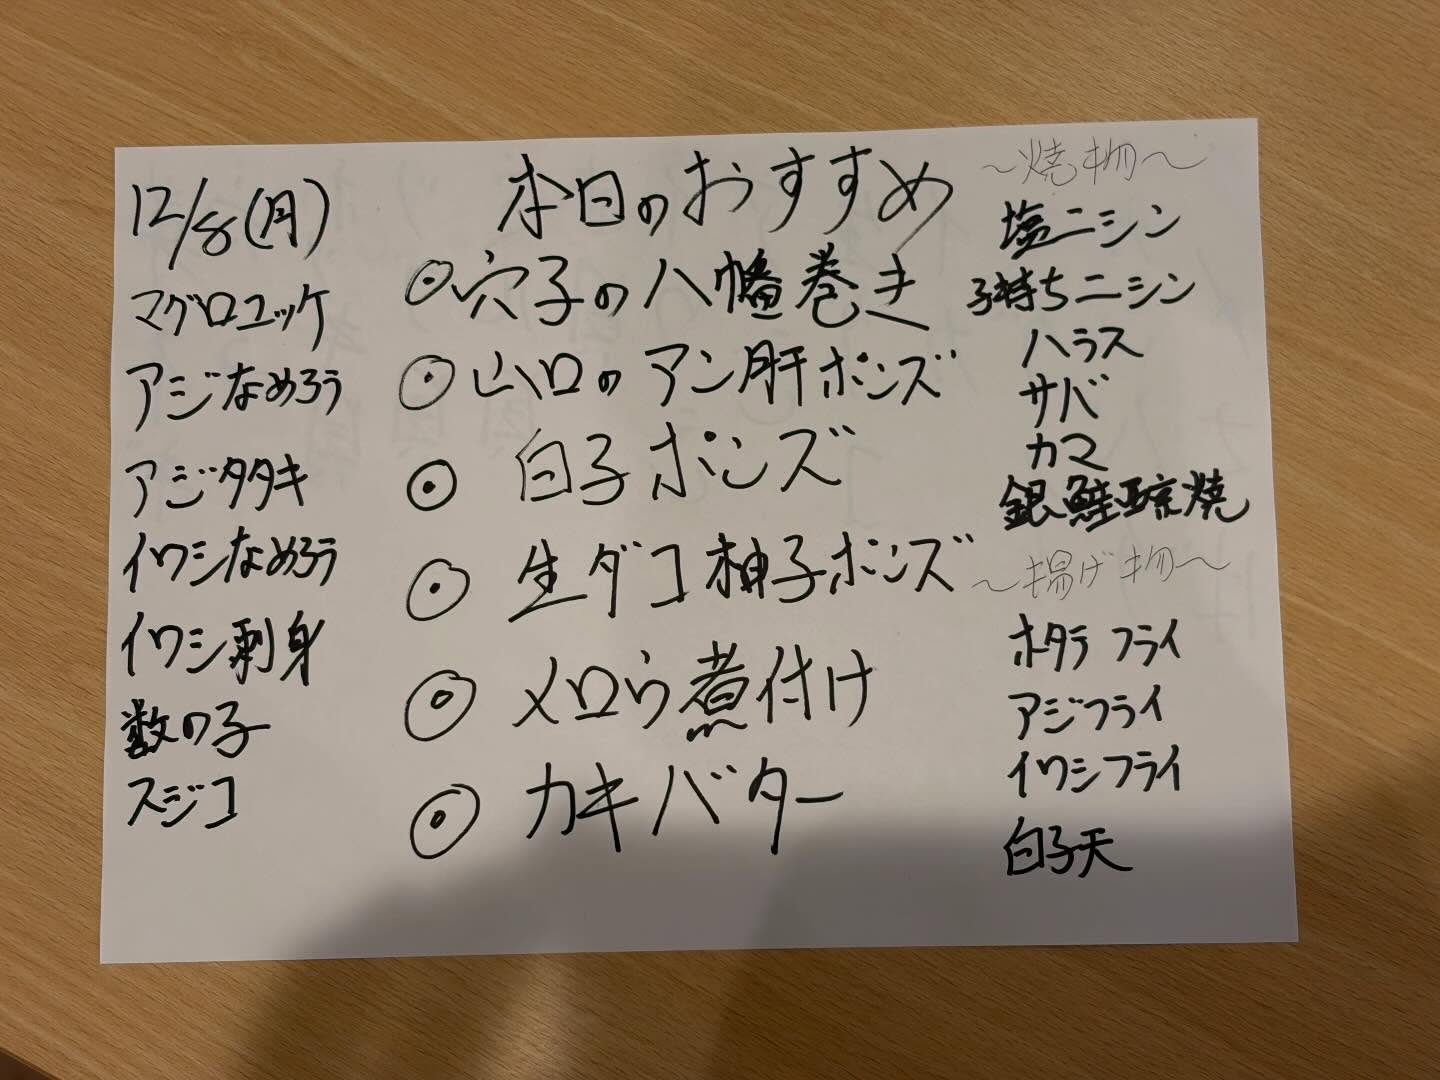 12/8(月)
マグロユッケ
アジなめろう
アジタタキ
イワシなめろう
イワシ刺身
数の子
スジコ
本日のおすすめ
◉穴子の八幡巻き
◉山口のアン肝ポンズ
◉白子ポンズ
◉生ダコ柚子ポンズ
◉メロウ煮付け
◉カキバター
～焼物～
塩ニシン
子持ちニシン
ハラス
サバ
カマ
銀鮭焼
～揚げ物～
ホタテフライ
アジフライ
イワシフライ
白子天